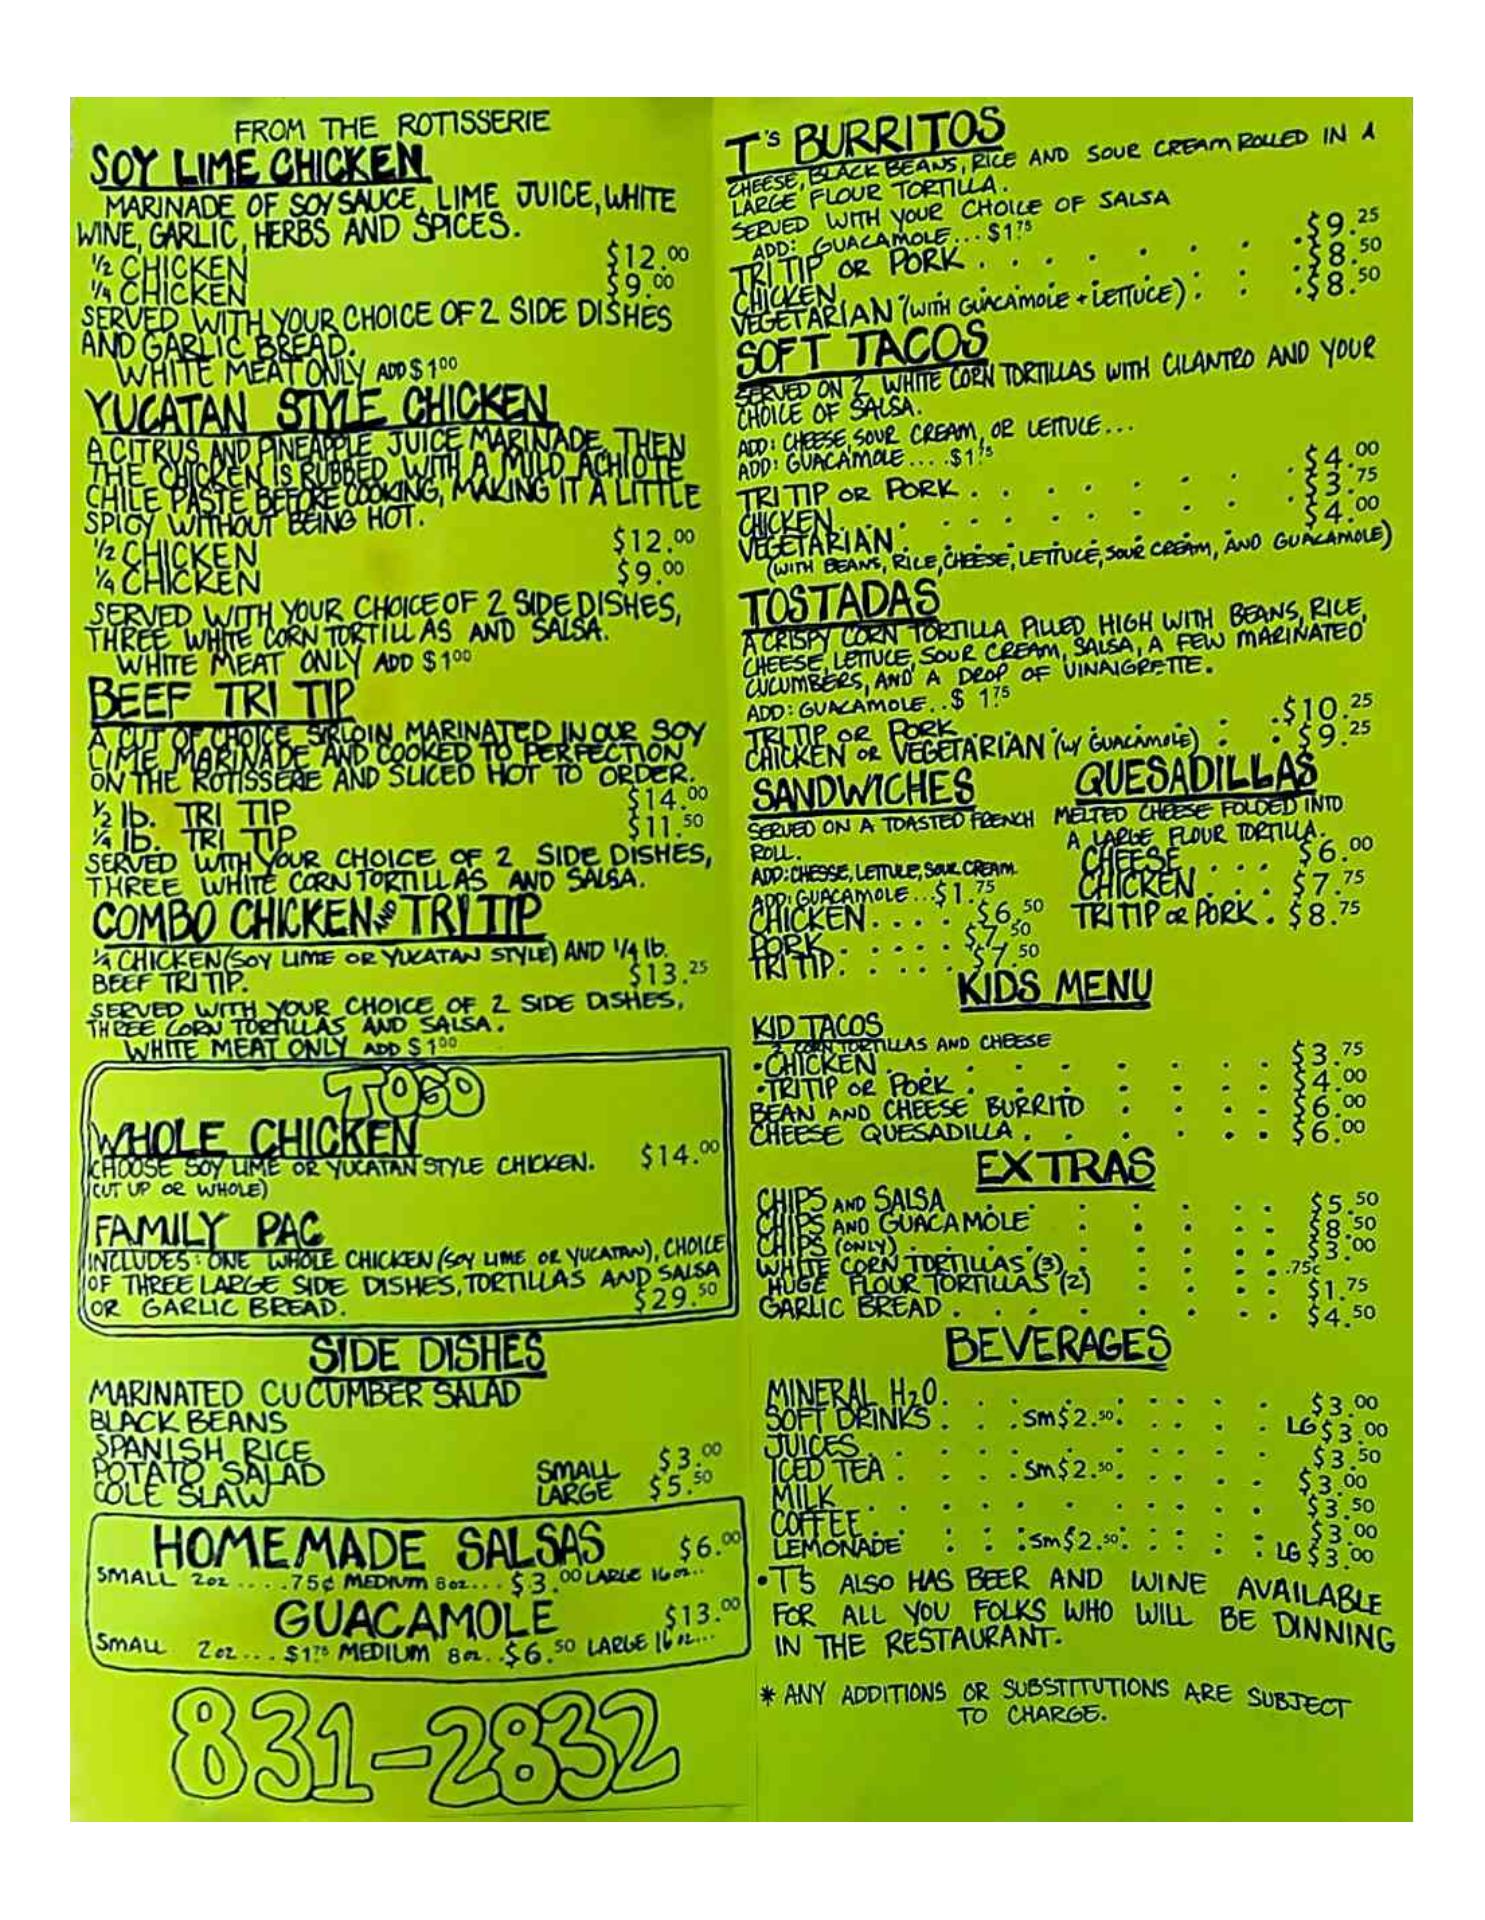 FROM THE ROTISSERIE
SOY LIME CHICKEN
MARINADE OF SOY SAUCE, LIME JUICE, WHITE
WINE, GARLIC, HERBS AND SPICES.
1/2 CHICKEN $12.00
1/4 CHICKEN $9.00
SERVED WITH YOUR CHOICE OF 2 SIDE DISHES
AND GARLIC BREAD.
WHITE MEAT ONLY ADD $1.00
YUCATAN STYLE CHICKEN
A CITRUS AND PINEAPPLE JUICE MARINADE, THEN
THE CHICKEN IS RUBBED WITH A MILD ACHIOTE
CHILE PASTE BEFORE COOKING, MAKING IT A LITTLE
SPICY WITHOUT BEING HOT.
1/2 CHICKEN $12.00
1/4 CHICKEN $9.00
SERVED WITH YOUR CHOICE OF 2 SIDE DISHES,
THREE WHITE CORN TORTILLAS AND SALSA.
WHITE MEAT ONLY ADD $1.00
BEEF TRI TIP
A CUT OF CHOICE SIRLOIN MARINATED IN OUR SOY
LIME MARINADE AND COOKED TO PERFECTION
ON THE ROTISSERIE AND SLICED HOT TO ORDER.
1/2 lb. TRI TIP $14.00
1/4 lb. TRI TIP $11.50
SERVED WITH YOUR CHOICE OF 2 SIDE DISHES,
THREE WHITE CORN TORTILLAS AND SALSA.
COMBO CHICKEN AND TRI TIP
1/4 CHICKEN (SOY LIME OR YUCATAN STYLE) AND 1/4 lb.
BEEF TRI TIP. $13.25
SERVED WITH YOUR CHOICE OF 2 SIDE DISHES,
THREE CORN TORTILLAS AND SALSA.
WHITE MEAT ONLY ADD $1.00
TOGO
WHOLE CHICKEN
CHOOSE SOY LIME OR YUCATAN STYLE CHICKEN. $14.00
(CUT UP OR WHOLE)
FAMILY PAC
INCLUDES: ONE WHOLE CHICKEN (SOY LIME OR YUCATAN), CHOICE
OF THREE LARGE SIDE DISHES, TORTILLAS AND SALSA
OR GARLIC BREAD. $29.50
SIDE DISHES
MARINATED CUCUMBER SALAD
BLACK BEANS
SPANISH RICE
POTATO SALAD SMALL $3.00
COLE SLAW LARGE $5.50
HOMEMADE SALSAS $6.00
SMALL 2oz .....75¢ MEDIUM 8oz... $3.00 LARGE 16oz...
GUACAMOLE $13.00
SMALL 2oz... $1.75 MEDIUM 8oz..$6.50 LARGE 16oz...
831-2832
T'S BURRITOS
CHEESE, BLACK BEANS, RICE AND SOUR CREAM ROLLED IN A
LARGE FLOUR TORTILLA.
SERVED WITH YOUR CHOICE OF SALSA
ADD: GUACAMOLE... $1.75
TRI TIP OR PORK . . . . . . . $9.25
CHICKEN . . . . . . . $8.50
VEGETARIAN (WITH GUACAMOLE + LETTUCE) . . . $8.50
SOFT TACOS
SERVED ON 2 WHITE CORN TORTILLAS WITH CILANTRO AND YOUR
CHOICE OF SALSA.
ADD: CHEESE, SOUR CREAM, OR LETTUCE...
ADD: GUACAMOLE....$1.75
TRI TIP OR PORK . . . . . . . $4.00
CHICKEN . . . . . . . $3.75
VEGETARIAN . . . . . . . $4.00
(WITH BEANS, RICE, CHEESE, LETTUCE, SOUR CREAM, AND GUACAMOLE)
TOSTADAS
A CRISPY CORN TORTILLA PILLED HIGH WITH BEANS, RICE,
CHEESE, LETTUCE, SOUR CREAM, SALSA, A FEW MARINATED
CUCUMBERS, AND A DROP OF VINAIGRETTE.
ADD: GUACAMOLE..$1.75
TRI TIP OR PORK . . . . . . . $10.25
CHICKEN OR VEGETARIAN (W/ GUACAMOLE) . . . $9.25
SANDWICHES
SERVED ON A TOASTED FRENCH
ROLL.
ADD: CHESSE, LETTUCE, SOUR CREAM.
ADD: GUACAMOLE...$1.75
CHICKEN . . . . $6.50
PORK . . . . . $7.50
TRI TIP . . . . . $7.50
QUESADILLAS
MELTED CHEESE FOLDED INTO
A LARGE FLOUR TORTILLA.
CHEESE . . . . $6.00
CHICKEN . . . $7.75
TRI TIP OR PORK . $8.75
KIDS MENU
KID TACOS
2 CORN TORTILLAS AND CHEESE
•CHICKEN . . . . . . . $3.75
•TRI TIP OR PORK . . . . . . . $4.00
BEAN AND CHEESE BURRITO . . . . $6.00
CHEESE QUESADILLA . . . . . . $6.00
EXTRAS
CHIPS AND SALSA . . . . . . $5.50
CHIPS AND GUACAMOLE . . . . . $8.50
CHIPS (ONLY) . . . . . . . $3.00
WHITE CORN TORTILLAS (3) . . . . . .75¢
HUGE FLOUR TORTILLAS (2) . . . . . $1.75
GARLIC BREAD . . . . . . . $4.50
BEVERAGES
MINERAL H2O . . . . . . . $3.00
SOFT DRINKS . . . Sm $2.50 . . . . LG $3.00
JUICES . . . . . . . $3.50
ICED TEA . . . . Sm $2.50 . . . . $3.00
MILK . . . . . . . $3.50
COFFEE . . . . . . . $3.00
LEMONADE . . . Sm $2.50 . . . . LG $3.00
•T'S ALSO HAS BEER AND WINE AVAILABLE
FOR ALL YOU FOLKS WHO WILL BE DINNING
IN THE RESTAURANT.
* ANY ADDITIONS OR SUBSTITUTIONS ARE SUBJECT
TO CHARGE.